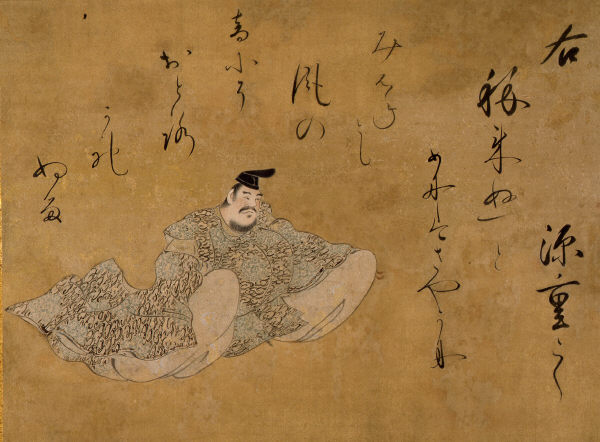 右
源重之
秋来ぬと
めにはさやかに
みえねとも
風の
音にそ
おとろ
かれ
ぬる